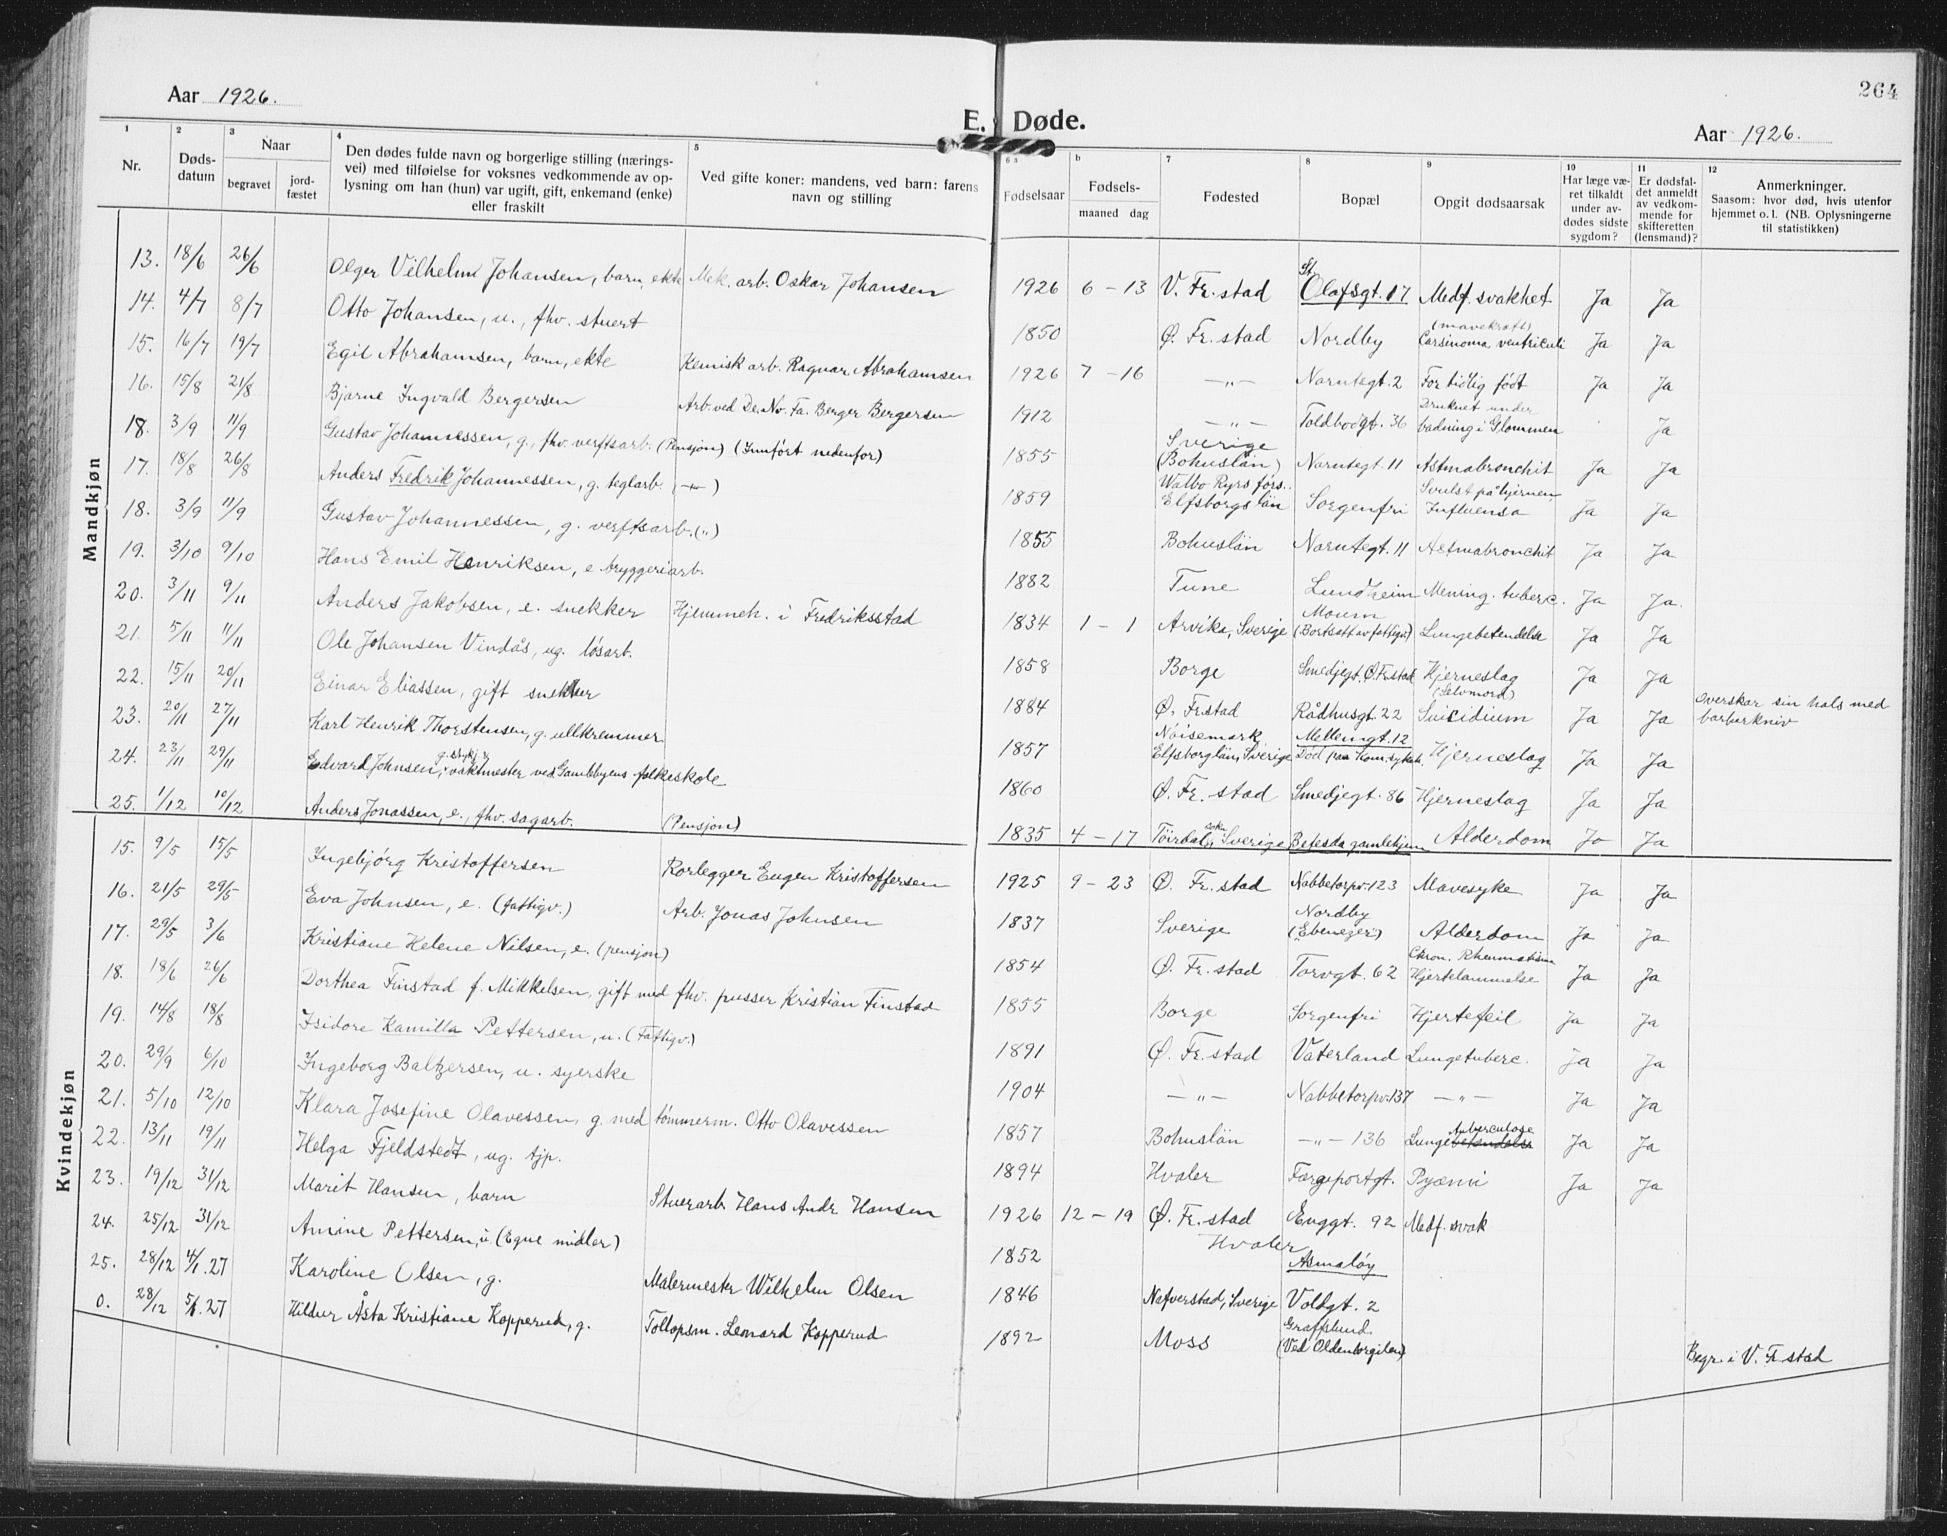 264
Aar 1926.
E. Døde.
Aar 1926.
1 2 3 4 5 6 a b 7 8 9 10 11 12
Nr.
Døds-
datum
Naar
begravet
jord-
fæstet
Den dødes fulde navn og borgerlige stilling (nærings-
vei) med tilføielse for voksnes vedkommende av op-
lysning om han (hun) var ugift, gift, enkemand (enke)
eller fraskilt
Ved gifte koner: mandens, ved barn: farens
navn og stilling
Fødselsaar
Fødsels-
maaned dag
Fødested
Bopæl
Opgit dødsaarsak
Har læge væ-
ret tilkaldt
under av-
dødes sidste
sygdom?
Er dødsfal-
det anmeldt
av vedkom-
mende for
skifteretten
(lensmand)?
Anmerkninger.
Saasom: hvor død, hvis utenfor
hjemmet o. l. (NB. Oplysningerne
til statistikken)
Mandkjøn
13. 18/6 26/6 Olger Vilhelm Johansen, barn, ekte Mek. arb. Oskar Johansen 1926 6 - 13 V. Fr.stad St. Olafsgt. 17 Medf. svakhet. Ja Ja
14. 4/7 8/7 Otto Johansen, u., fhv. stuert 1850 Ø. Fr. stad Nordby (mavekræft) Carsinoma ventriculi Ja Ja
15. 16/7 19/7 Egil Abrahamsen, barn, ekte Kemisk arb. Ragnar Abrahamsen 1926 7 - 16 -"- Narntegt. 2 For tidlig født Ja Ja
16. 15/8 21/8 Bjarne Ingvald Bergersen Arb. ved De. No. Fa. Berger Bergersen 1912 -"- Toldbodgt. 36 Druknet under badning i Glommen Ja
18. 3/9 11/9 Gustav Johannessen, g., fhv. verftsarb. (Pensjon) (Innført nedenfor) 1855 Sverige (Bohuslän) Narntegt. 11 Astmabronchit Ja Ja
17. 18/8 26/8 Anders Fredrik Johannessen, g. teglarb. (-"-) 1859 Walbo Ryrs førs.. Elfsborgslän Sorgenfri Svulst på hjernen Influensa Ja Ja
18. 3/9 11/9 Gustav Johannessen, g. verftsarb. (") 1855 Bohuslän Narntegt. 11 Astmabronchit Ja Ja
19. 3/10 9/10 Hans Emil Henriksen, e. bryggeriarb. 1882 Tune Lundheim Mening. tuberc. Ja Ja.
20. 3/11 9/11 Anders Jakobsen, e. snekker Hjemmeh. i Fredriksstad 1834 1 - 1 Arvika, Sverige Moum (Bortsatt av fattigv.) Lungebetendelse Ja Ja
21. 5/11 11/11 Ole Johansen Vindås, ug. løsarb. 1858 Borge Smedjegt. Ø. Fr.stad Hjerneslag Ja Ja
22. 15/11 20/11 Einar Eliassen, gift snekker 1884 Ø. Fr.stad Rådhusgt. 22 (Selvmord) Suicidium Ja Ja Overskar sin hals med barberkniv
23. 20/11 27/11 Karl Henrik Thorstensen, g. ullkremmer 1857 Nøisemark Elfsborglän, Sverige Mellemgt. 12 Død paa Kom. sykeh. Hjerneslag Ja Ja
24. 23/11 29/11 Edvard Johnsen, g. vaktmester ved Gamlebyens folkeskole 1860 Ø. Fr. stad Smedjegt. 86 Hjerneslag Ja Ja
25. 1/12 10/12 Anders Jonassen, e., fhv. sagarb. (Pensjon) 1835 4 - 17 Töirdals sokn Sverige Betesda gamlehjem Alderdom Ja Ja
Kvindekjøn
15. 9/5 15/5 Ingebjörg Kristoffersen Rørlegger Eugen Kristoffersen 1925 9 - 23 Ø. Fr. stad Nabbetorpv. 123 Mavesyke Ja Ja
16. 21/5 29/5 Eva Johnsen, e. (fattigv.) Arb. Jonas Johnsen 1837 Sverige Nordby ("Ebenezer") Alderdom Ja Ja
17. 29/5 3/6 Kristiane Helene Nilsen, e. (pensjon) 1854 Ø. Fr. stad Torvgt. 62 Chron. Rheumatisme Hjertelammelse Ja Ja
18. 18/6 26/6 Dorthea Finstad f. Mikkelsen, gift med fhv. pusser Kristian Finstad 1855 Borge Sorgenfri Hjertefeil Ja Ja
19. 14/8 18/8 Isidore Kamilla Pettersen, u. (Fattigv.) 1891 Ø. Fr. stad Vaterland Lungetuberc. Ja Ja
20. 29/9 6/10 Ingeborg Baltzersen, u. syerske 1904 -"- Nabbetorpv. 137 -"- Ja Ja
21. 5/10 12/10 Klara Josefine Olavessen, g. med tømmerm. Otto Olavessen 1857 Bohuslän -"- 136 Lungetuberculose betendelse Ja Ja
22. 13/11 19/11 Helga Fjeldstedt, ug. tjp. 1894 Hvaler Færgeportgt. Pyæmi Ja Ja
23. 19/12 31/12 Marit Hansen, barn Stuerarb. Hans Andr. Hansen 1926 12 - 19 Ø. Fr. stad Enggt. 92 Medf. svak
24. 25/12 31/12 Amine Pettersen, u. (Egne midler) 1852 Hvaler Asmaløy
25. 28/12 4/1.27 Karoline Olsen, g. Malermester Wilhelm Olsen 1846 Nafverstad, Sverige Voldgt. 2
0. 28/12 5/1.27 Hildur Åsta Kristiane Kopperud, g. Tollopsm. Leonard Kopperud 1892 Moss Graffslund (Ved Oldenborgilen) Begr. i V. Fr.stad